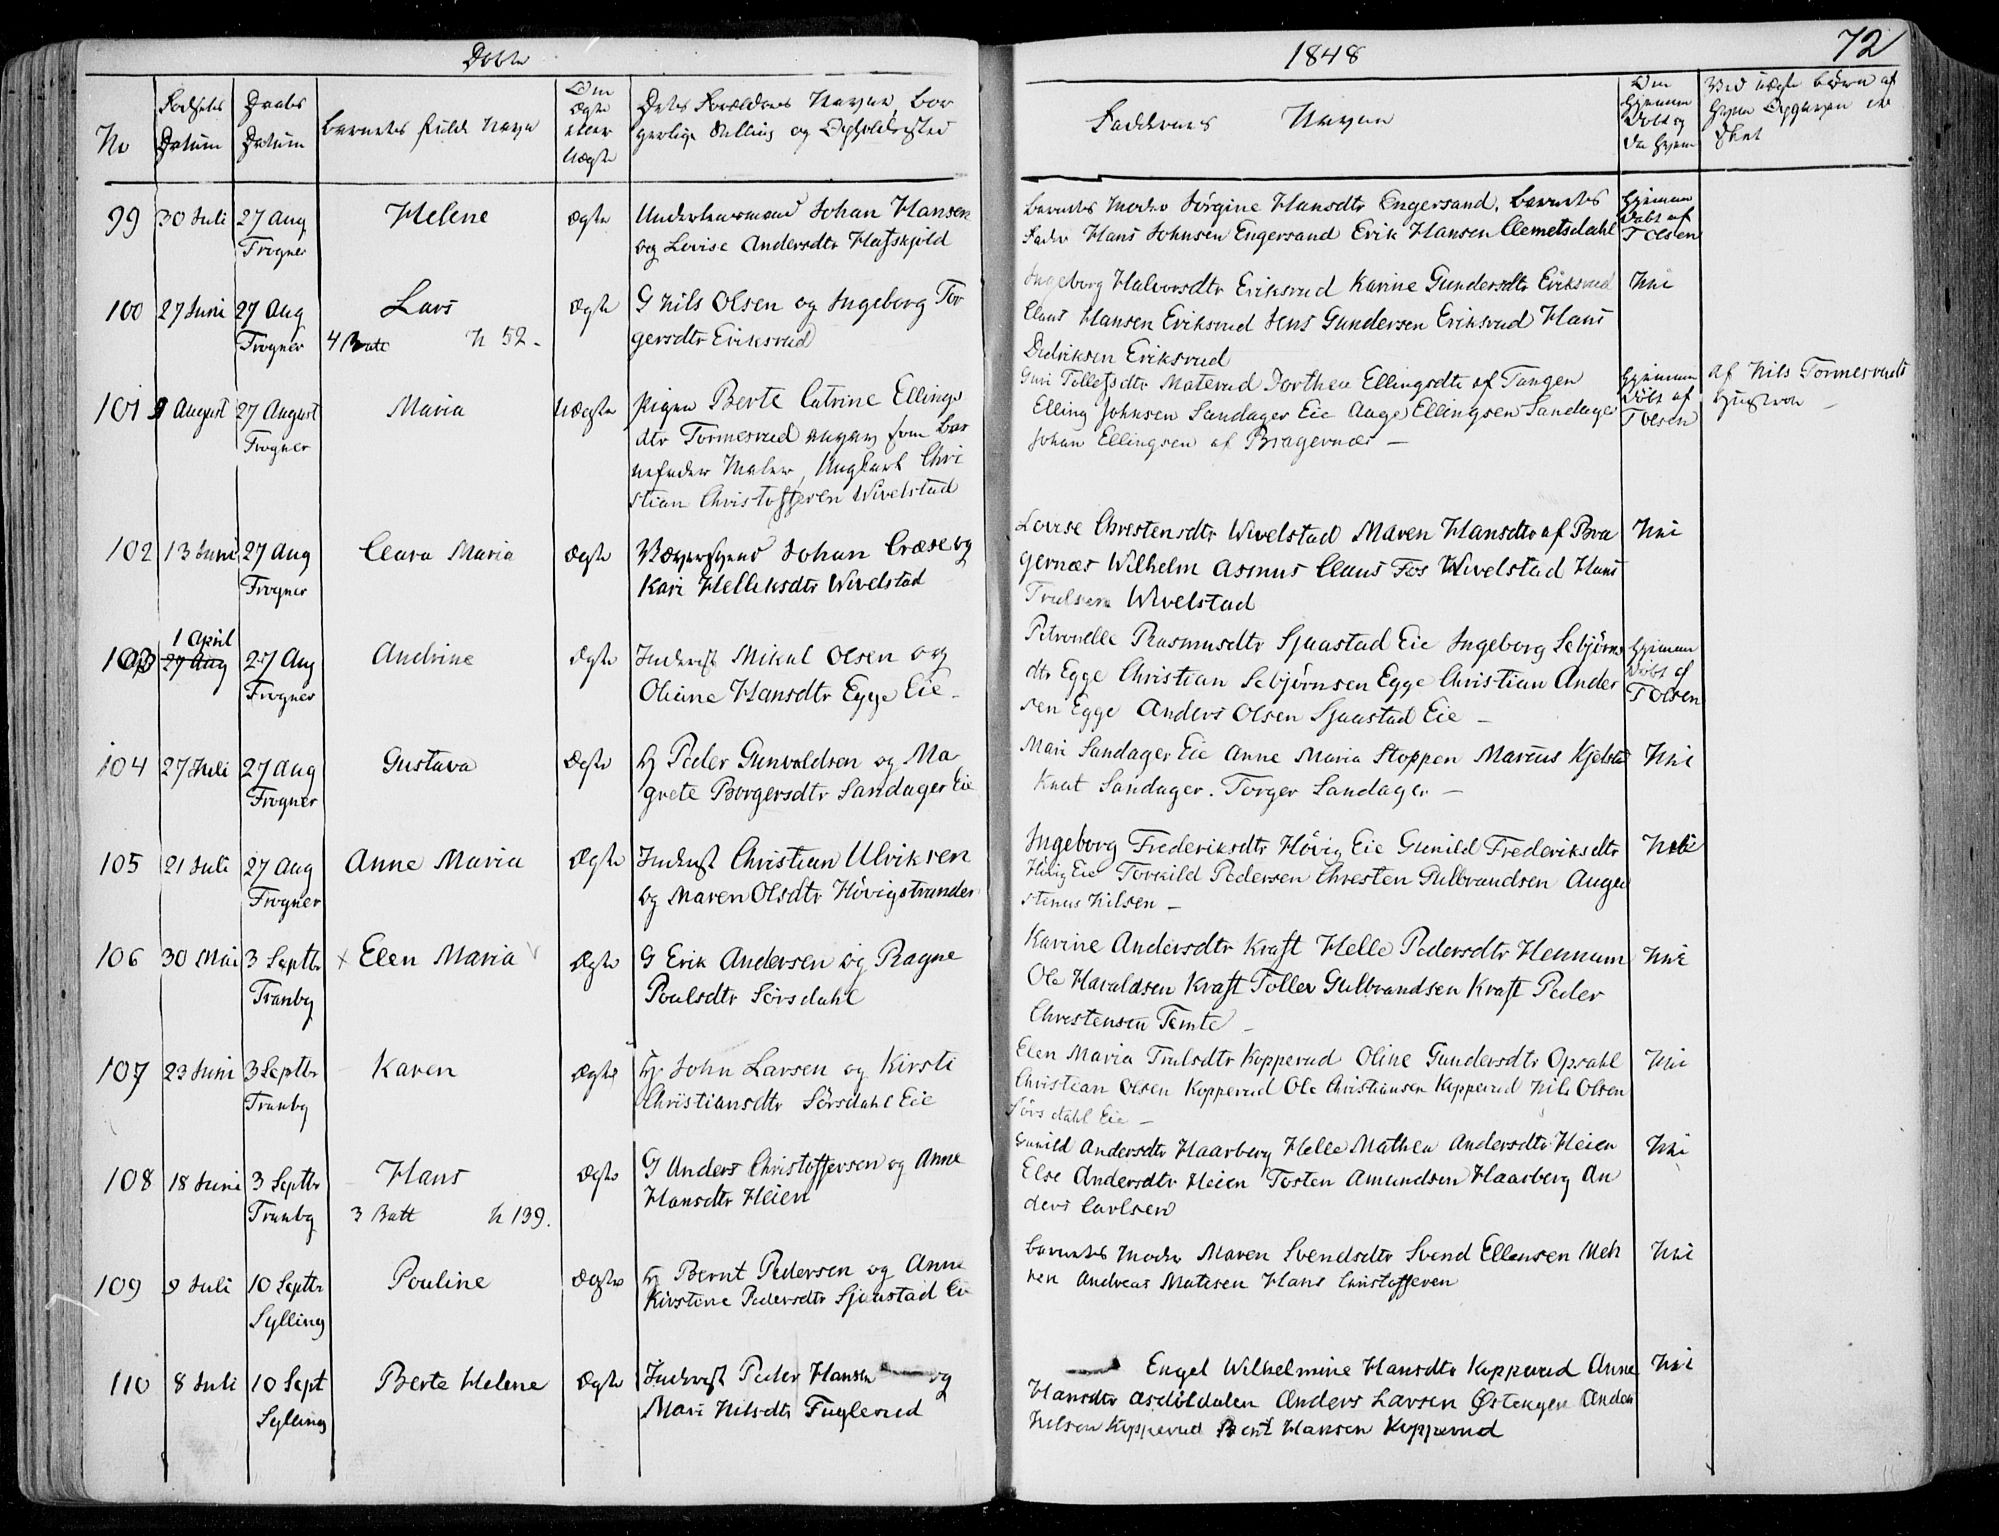 Døbte
1848
72
No
Fødsels Datum
Daabs Datum
Barnets fulde Navn
Om Ægte eller Uægte
Dets Forældres Navne, bor
gerlige Stilling og Opholdssted
Faddernes Navne
Om hjemme
Døbt og
Ved uægte Børn af
99 30 Juli 27 Aug Helene Ægte Underlensmand Johan Hansen
Frogner og Lovise Andersdtr Hafskjold
Barnets Moder Jørgine Hansdtr Engersand, Barnets
Fader Hans Johnsen Engersand Erik Hansen Clemetsdahl
Hjemme
Døbt af
T Olsen
100 27 Juni 27 Aug Lars Ægte G Nils Olsen og Ingeborg Tor
Frogner 4 Batt N 52. gersdtr Eriksrud
Ingeborg Halvorsdtr Eriksrud Karine Gundersdtr Eriksrud Nei
Claus Hansen Eriksrud Jens Gundersen Eriksrud Hans
Didriksen Eriksrud
101 9 August 27 August Maria Uægte Pigen Berte Catrine Ellings
Frogner dtr Tormesrud angav som Bar
nefader Maler, Ungkarl Chri
stian Christoffersen Wivelstad
Guri Tollefsdtr Materud Dorthea Ellingsdtr af Tangen
Elling Johnsen Sandager Eie Aage Ellingsen Sandager
Johan Ellingsen af Bragernæs —
Hjemme
Døbt af
T Olsen
af Nils Tormesruds
Hustroe —
102 13 Juni 27 Aug Clara Maria Ægte Johan Cræse og
Frogner Kari Helliksdtr Wivelstad
Lovise Christensdtr Wivelstad Maren Hansdtr af Bra Nei
gernæs Wilhelm Asmus Claus Fos Wivelstad Hans
Trulsen Wivelstad
1 April
103 27 Aug 27 Aug Andrine Ægte Inderst Mikal Olsen og
Frogner Oliine Hansdtr Egge Eie —
Petronelle Rasmusdtr Sjaastad Eie Ingeborg Sebjørns
dtr Egge Christian Sebjørnsen Egge Christian Ander
sen Egge Anders Olsen Sjaastad Eie —
Hjemme
Døbt af
T Olsen
104 27 Juli 27 Aug Gustava Ægte Hr Peder Gunvaldsen og Ma
Frogner grete Borgersdtr Sandager Eie
Mari Sandager Eie Anne Maria Stoppen Marcus Kjelstad Nei
Knut Sandager. Torger Sandager —
105 21 Juli 27 Aug Anne Maria Ægte Inderst Christian Ulriksen
Frogner og Maren Olsdtr Høvigstranden
Ingeborg Frederiksdtr Høvig Eie Gunild Frederiksdtr Nei
Høvig Eie Torkild Pedersen Chresten Gulbrandsen Augu
stinus Nilsen —
106 30 Mai 3 Septbr Elen Maria Ægte G Erik Andersen og Ragne
Tranby Poulsdtr Sørsdahl
Karine Andersdtr Kraft Helle Pedersdtr Hennum Nei
Ole Haraldsen Kraft Toller Gulbrandsen Kraft Peder
Christensen Temte —
107 23 Juni 3 Septbr Karen Ægte Hr John Larsen og Kirsti
Tranby Christiansdtr Sørsdahl Eie
Elen Maria Trulsdtr Kopperud Oline Gundersdtr Opsahl Nei
Christian Olsen Kopperud Ole Christiansen Kopperud Nils Olsen
Sørsdahl Eie —
108 18 Juni 3 Septbr Hans Ægte G Anders Christoffersen og Anne
Tranby 3 Batt N 139. Hansdtr Heien
Gunild Andersdtr Haarberg Helle Mathea Andersdtr Heien Nei
Else Andersdtr Heien Tosten Amundsen Haarberg An
ders Carlsen
109 9 Juli 10 Septbr Pouline Ægte Hr Bernt Pedersen og Anne
Sylling Kirstine Pedersdtr Sjaastad Eie
Barnets Moder Maren Svendsdtr Svend Ellensen Meh Nei
ren Andreas Matisen Hans Christoffersen
110 8 Juli 10 Sept Berte Helene Ægte Inderst Peder Hansen og
Sylling Mari Nilsdtr Fuglerud
Engel Wilhelmine Hansdtr Kopperud Anne Nei
Hansdtr Asdøldalen Anders Larsen Østengen Anders
Nilsen Kopperud Bent Hansen Kopperud